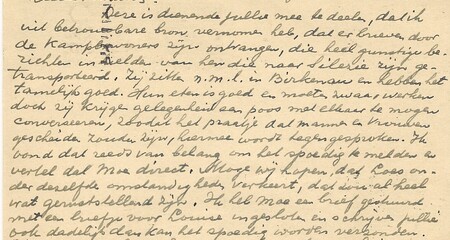 Deze is dienende jullie mee te deelen, dat ik
uit betrouwbare bron vernomen heb, dat er brieven door
de Kampbewoners zijn ontvangen, die heel gunstige be-
richten in melden van hen die naar Silezie zijn ge-
transporteerd. Zij zitten n.m.l. in Birkenau en hebben het
tamelijk goed. Hun eten is goed en moeten zwaar werken
doch zij krijgen gelegenheid een poos met elkaar te mogen
converseeren, zoodat het praatje dat mannen en vrouwen
gescheiden zouden zijn, hiermee wordt tegengesproken. Ik
vond dat reeds van belang om het spoedig te melden en
vertel dat Moe direct. Moge wij hopen, dat Loes on-
der dezelfde omstandigheden verkeert, dat zou al heel
wat geruststellend zijn. Ik heb Moe een brief gestuurd
met een briefje voor Louise ingesloten en schrijven jullie
ook dadelijk dan kan het spoedig worden verzonden.